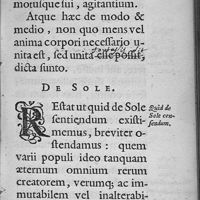 motusque sui, agitantium.
Atque hæc de modo &
medio, non quo mens vel
anima corpori necessario u-
nita est, sed unita esse possit,
dicta sunto.
DE SOLE.
REstat ut quid de Sole
sentiendum existi-
memus, breviter o-
stendamus: quem
varii populi ideo tanquam
æternum omnium rerum
creatorem, verumq; ac im-
mutabilem vel inalterabi-
Quid de
Sole cen-
sendum.